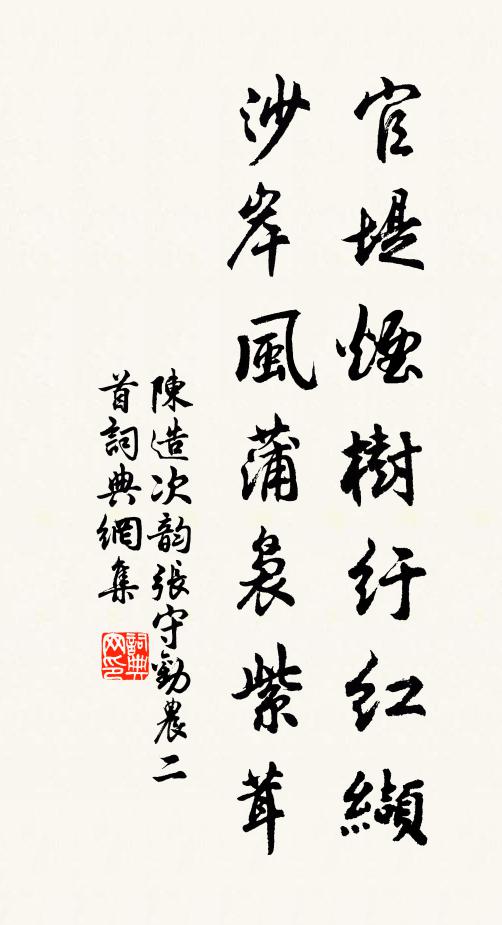 官堤煙樹紆紅纈
沙岸風蒲裊紫茸
陳造次韵張守勸農二
首詞典網集
詞典网印